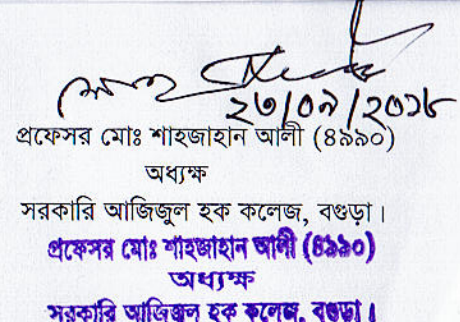 ২৩/০৯/২০১৮
প্রফেসর মোঃ শাহজাহান আলী (৪৯৯০)
অধ্যক্ষ
সরকারি আজিজুল হক কলেজ, বগুড়া।
প্রফেসর মোঃ শাহজাহান আলী (৪৯৯০)
অধ্যক্ষ
সরকারি আজিজুল হক কলেজ, বগুড়া।